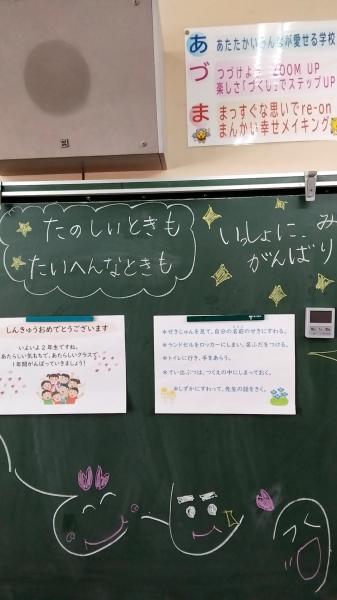 あ あたたかいみんなが愛せる学校
づ つづけよう ZOOM UP
楽しさ「づくし」でステップUP
ま まっすぐな思いでre-on
まんかい幸せメイキング
たのしいときも
たいへんなときも
いっしょに、み
がんばり
しんきゅうおめでとうございます
いよいよ2年生ですね。
あたらしい気もちで、あたらしいクラスで、
1年間がんばっていきましょう!
＊せきじゅんを見て、自分の名前のせきにすわる。
＊ランドセルをロッカーにしまい、名ふだをつける。
＊トイレに行き、手をあらう。
＊てい出ぶつは、つくえの中にしまっておく。
＊しずかにすわって、先生の話をきく。